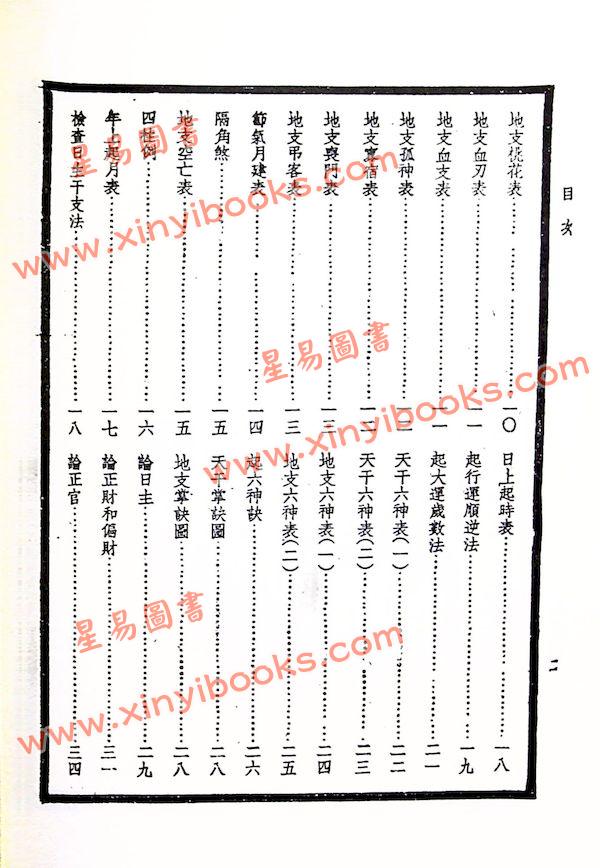 目次
地支桃花表⋯⋯一〇
地支血刃表⋯⋯一一
地支血支表⋯⋯一一
地支孤神表⋯⋯一二
地支寡宿表⋯⋯一二
地支喪門表⋯⋯一三
地支弔客表⋯⋯一三
節氣月建表⋯⋯一四
隔角煞⋯⋯一五
地支空亡表⋯⋯一五
四柱例⋯⋯一六
年上起月表⋯⋯一七
檢查日生干支法⋯⋯一八
日上起時表⋯⋯一八
起行運順逆法⋯⋯一九
起大運歲數法⋯⋯二一
天干六神表(一)⋯⋯二二
天干六神表(二)⋯⋯二三
地支六神表(一)⋯⋯二四
地支六神表(二)⋯⋯二五
起六神訣⋯⋯二六
天干掌訣圖⋯⋯二八
地支掌訣圖⋯⋯二八
論日主⋯⋯二九
論正財和偏財⋯⋯三一
論正官⋯⋯三四
二
星易圖書
www.xinyibooks.com
星易圖書
www.xinyibooks.com
星易圖書
www.xinyibooks.com